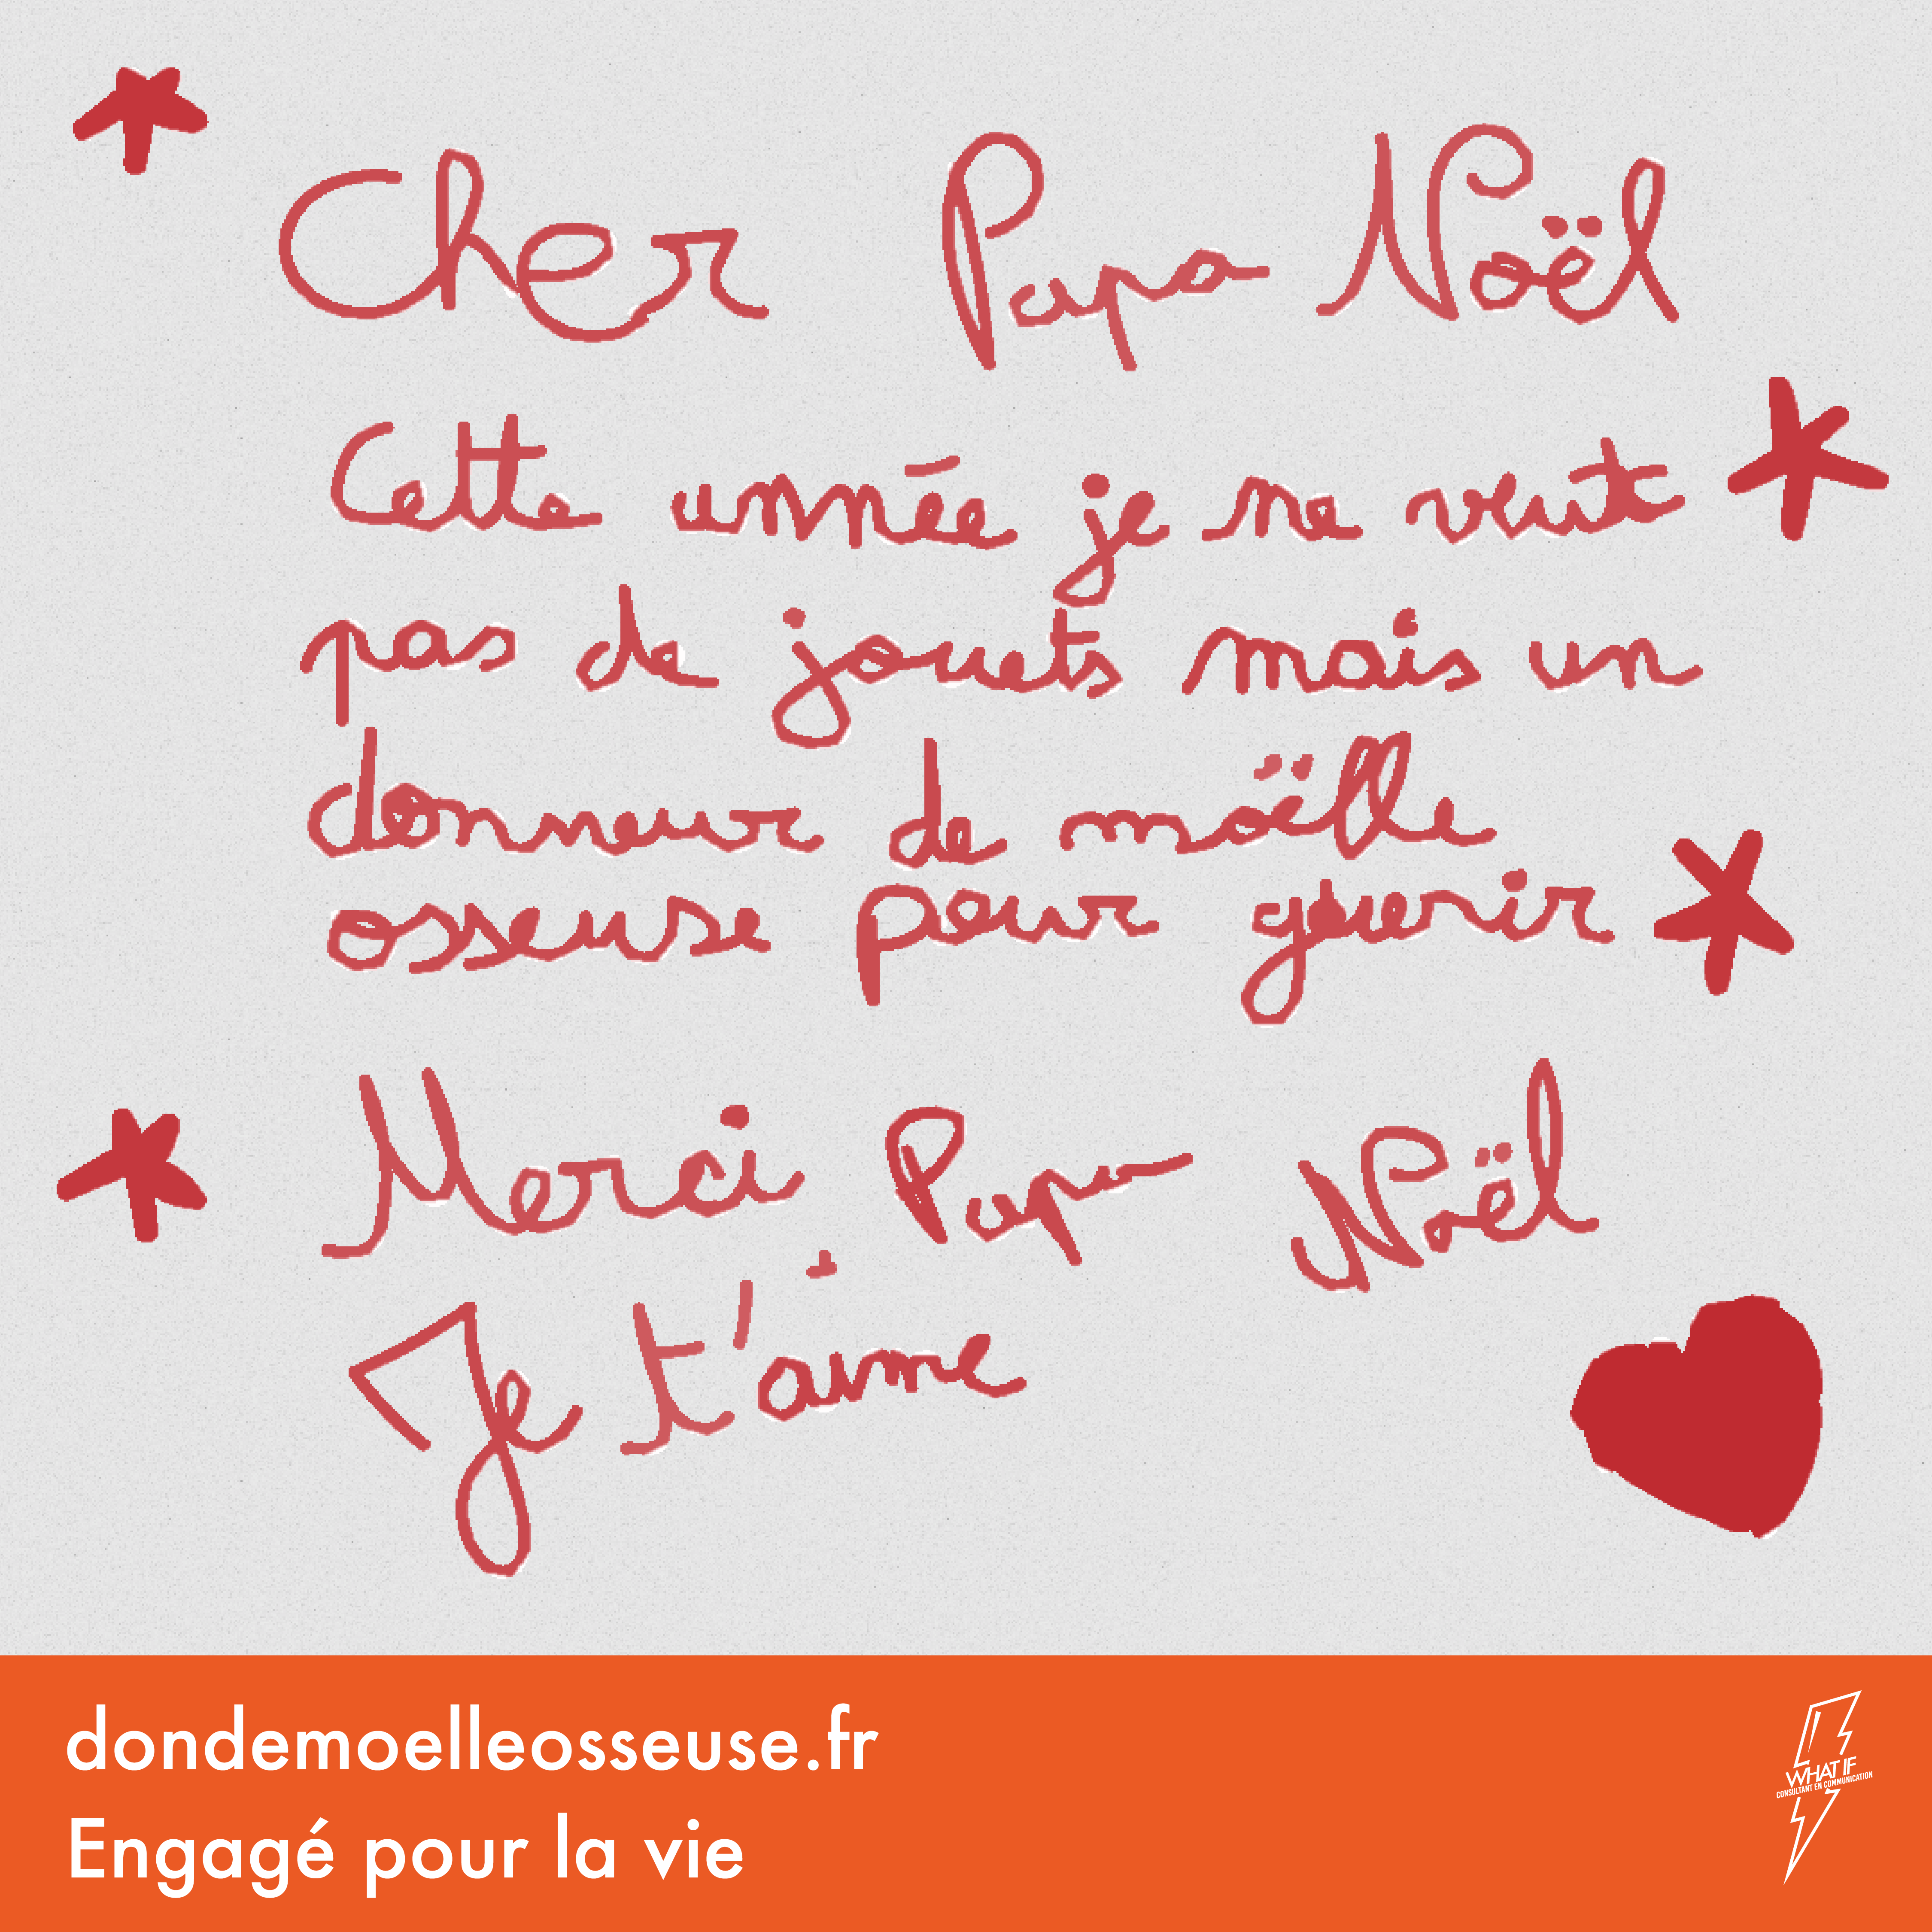 Cher Papa Noël
Cette année je ne veut
pas de jouets mais un
donneur de moëlle
osseuse pour guerir
Merci Papa Noël
Je t'aime
dondemoelleosseuse.fr
Engagé pour la vie
WHAT IF
CONSULTANT EN COMMUNICATION